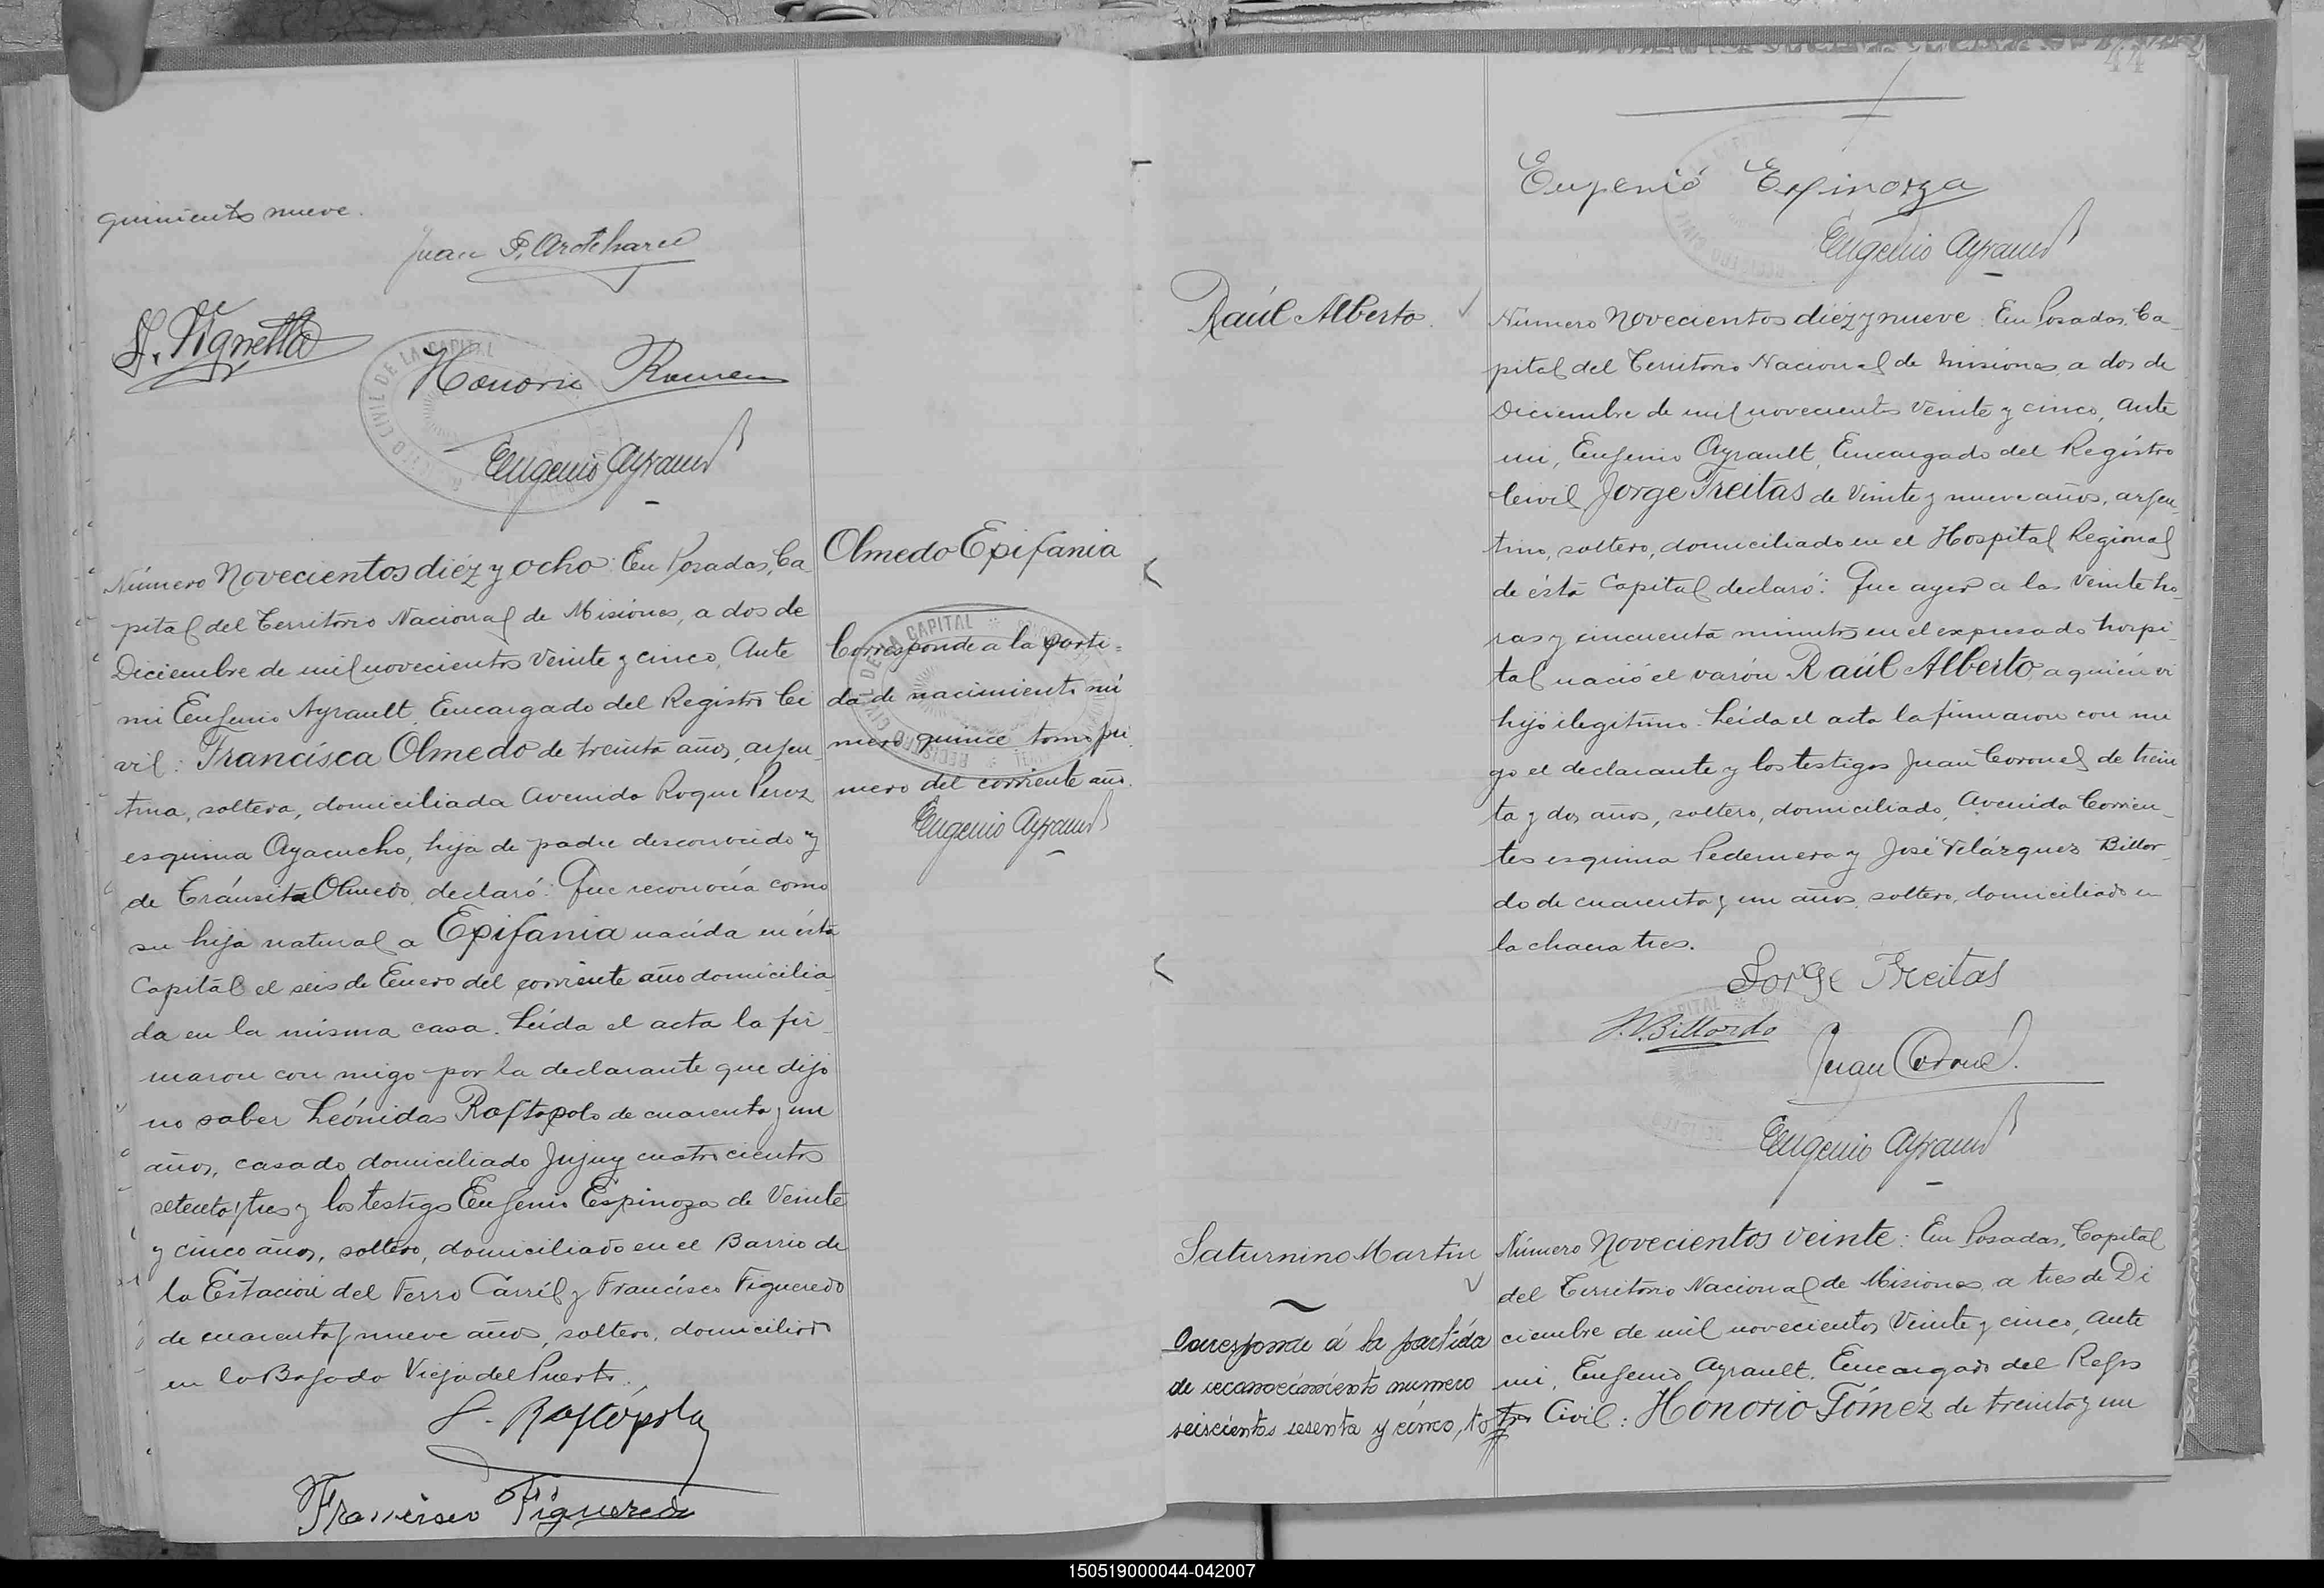 quinientos nueve.
Juan P. Ardehare
S. Vignetta
Honorio Romero
Eugenio Ayrault
Olmedo Epifania
Número Novecientos diéz y ocho: En Posadas, Ca
pital del Territorio Nacional de Misiones, a dos de
Diciembre de mil novecientos Veinte y cinco, Ante
mi Eugenio Ayrault, Encargado del Registro Ci
vil: Francisca Olmedo de treinta años, argen
tina, soltera, domiciliada Avenida Roque Perez
esquina Ayacucho, hija de padre desconocido y
de Tránsita Olmedo, declaró: Que reconocía como
su hija natural a Epifania nacida en ésta
Capital el seis de Enero del corriente año domicilia
da en la misma casa. Leída el acta la fir
maron con migo por la declarante que dijo
no saber Leónidas Raftopolo de cuarenta y un
años, casado, domiciliado Jujuy cuatrocientos
setenta y tres y los testigos Eugenio Espinoza de Veinte
y cinco años, soltero, domiciliado en el Barrio de
la Estación del Ferro Cárril y Francisco Figueredo
de cuarenta y nueve años, soltero, domiciliado
en la Bajada Vieja del Puerto.
L. Raftópolo
Francisco Figueredo
Corresponde a la parti=
da de nacimiento nú
mero quince tomo pri
mero del corriente año.
Eugenio Ayrault
REGISTRO CIVIL DE LA CAPITAL
44
Eugenio Espinoza
Eugenio Ayrault
Raúl Alberto.
Número Novecientos diéz y nueve: En Posadas, Ca
pital del Territorio Nacional de Misiones, a dos de
Diciembre de mil novecientos Veinte y cinco, Ante
mi, Eugenio Ayrault, Encargado del Registro
Civil Jorge Freitas de Veinte y nueve años, argen
tino, soltero, domiciliado en el Hospital Regional
de ésta Capital declaró: Que ayer a las Veinte ho
ras y cincuenta minutos en el expresado hospi
tal nació el varón Raúl Alberto a quién vi
hijo ilegítimo. Leída el acta la firmaron con mi
go el declarante y los testigos Juan Coronel de trein
ta y dos años, soltero, domiciliado, Avenida Corrien
tes esquina Pedernera y José Velázquez Billor
do de cuarenta y un años, soltero, domiciliado en
la chacra tres.
Jorge Freitas
J. V. Billordo
Juan Coronel.
Eugenio Ayrault
Saturnino Martin
Corresponde á la partida
de reconocimiento numero
seiscientos sesenta y cinco, to
Número Novecientos Veinte: En Posadas, Capital
del Territorio Nacional de Misiones, a tres de Di
ciembre de mil novecientos Veinte y cinco, Ante
mi, Eugenio Ayrault, Encargado del Regis
tro Civil: Honorio Gómez de treinta y un
150519000044-042007